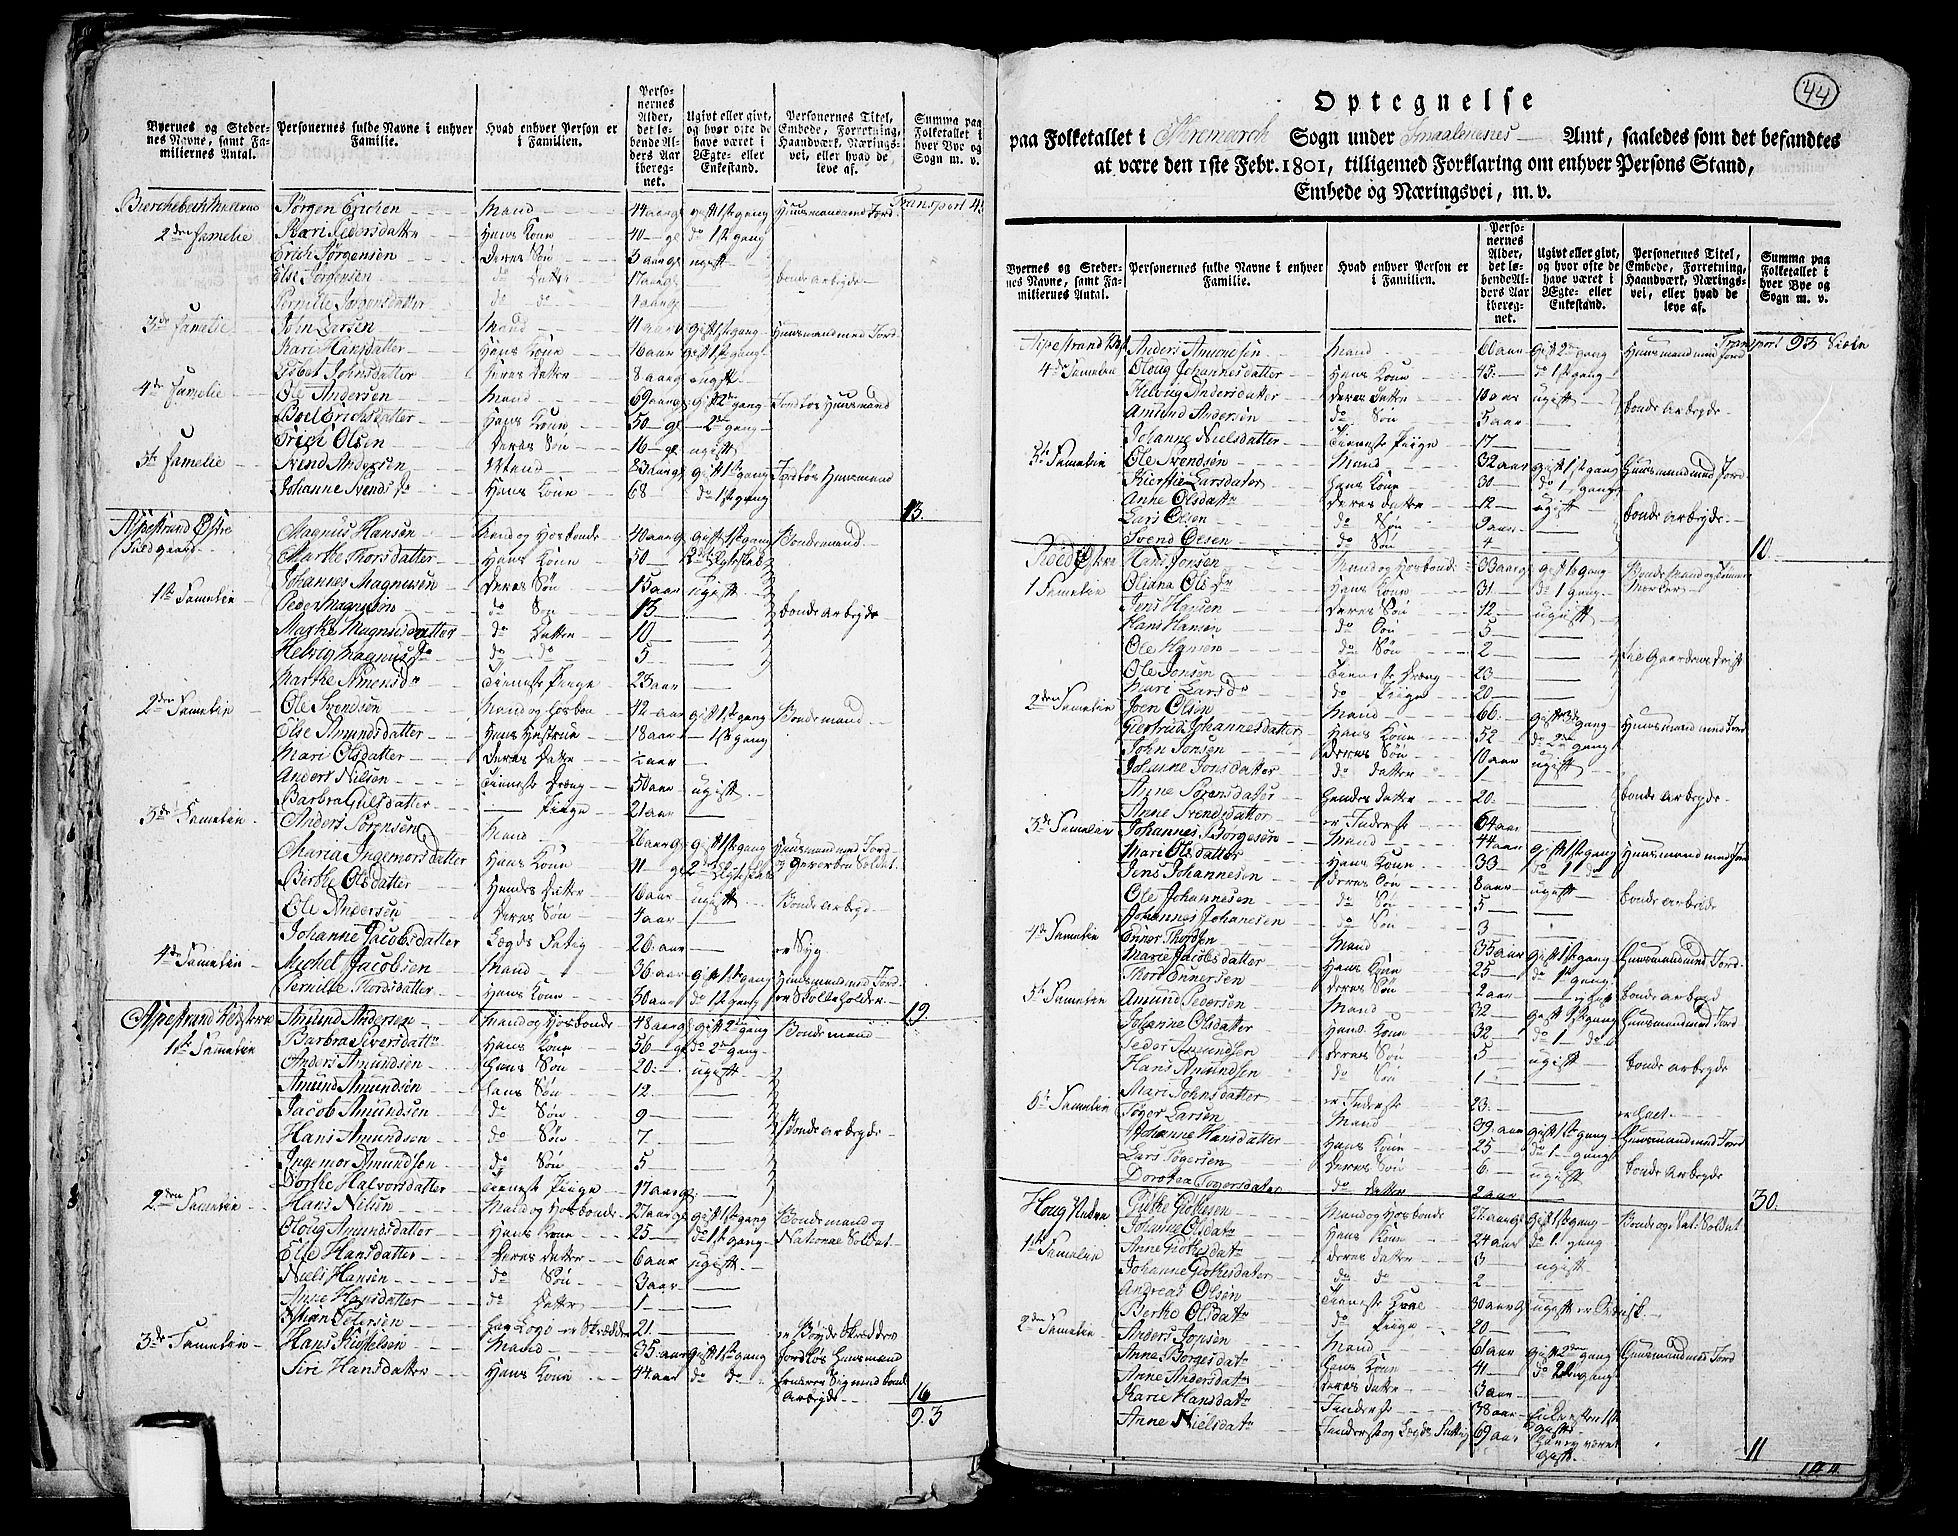 44
Byernes og Steder- nes Navne, samt Fa- miliernes Antal. Personernes fulde Navne i enhver Familie. Hvad enhver Person er i Familien. Perso- nernes Alder, det lø- bende Al- ders Aar iberegnet. Ugivt eller givt, og hvor ofte de have været i Ægte- eller Enkestand. Personernes Titel, Embede, Forretning, Haandværk, Nærings- vei, eller hvad de leve af. Summa paa Folketallet i hver Bye og Sogn m. v.
Transport 45
Jørgen Erichsen Mand 44 aar gift 1ste gang Huusmand med Jord
2den Familie Kari Pedersdatter Hans Kone 40 do 1ste gang
Erich Jørgensen Deres Søn 3 aar ugift
Else Jørgensen do Datter 17 aar bonde arbeyde
Pernille Jørgensdatter do do
3de Familie John Larsen Mand 41 aar gift 1ste gang Huusmand med Jord
Kari Hansdatter Hans Kone 46 aar gift 1ste gang
Johnsdatter Deres Datter 8 aar ugift
4de Familie Ole Andersen Mand 69 aar gift 2den gang Jordløs Huusmand
Boel Erichsdatter Hans Kone 50 2den gang
Erich Olsen Deres Søn 16 ugift
5te Familie Svend Andersen Mand 83 aar gift 1ste gang Jordløs Huusmand
Johanne Svends do Hans Kone 68 do 1ste gang
13
Aspestrand Østre Magnus Hansen Mand og Hosbonde 40 aar gift 1ste gang Bondemand
Marthe Thorsdatter Hans Kone 50
1ste Familie Johannes Magnesen Deres Søn 15 aar ugift
Peder Magnesen do Søn 13 bonde arbeyde
Marthe Magnesdatter do Datter 10
Helvig Magnus do do do 5
Marthe Tieneste Piige 23 aar
2den Familie Ole Svendsen Mand og Hosbon 42 aar gift 1ste gang Bondemand
Else Amundsdatter Hans Hustrue 18 aar 1ste gang
Mari Olsdatter Deres Datter
Anders Nilsen Tieneste Dreng 50 aar ugift
Barbra Gulsdatter Piige 21 aar
3de Familie Anders Sørensen Mand 26 aar gift 1ste gang Huusmand med Jord
Maria Ingemorsdatter Hans Kone 41
Berthe Olsdatter Hendes Datter 16 aar ugift Bonde arbeyd
Ole Andersen Deres Søn 4 aar
Johanne Jacobsdatter Lægds Fattig 26 aar er Syg
4de Familie Michel Jacobsen Mand 36 aar gift 1ste gang Huusmand med Jord
Pernille Thordsdatter Hans Kone 30 aar do 1ste gang er Skoleholder
19
Aspestrand Vestre Amund Andersen Mand og Hosbonde 48 aar gift 2den gang Bondemand
1ste Familie Barbra Siversdatter Hans Kone 56 do 2den gang
Anders Amundsen Hans Søn 20 ugift
Amund Amundsen Hans Søn 12
Jacob Amundsen do Søn 9
Hans Amundsen do Søn 7 Bonde arbeyde
Ingemor Amundsen do Søn 5
Dorthe Halvorsdatter Tieneste Piige 17 aar
2den Familie Hans Nilsen Mand og Hosbonde 27 aar gift 1ste gang Bondemand og
Oloug Amundsdatter Hans Kone 25 do 1ste gang National Soldat
Else Hansdatter Deres Datter 6 aar ugift
Niels Hansen do Søn 3 aar
Anne Hansdatter do Datter 1
21 er Bøyde Skrædder
3de Familie Hans Mand 35 aar gift 1ste gang Jordløs Huusmand
Siri Hansdatter Hans Kone 44 aar do do
Arbeyde 16
93
Optegnelse
paa Folketallet i Aremarch Sogn under Smaalenenes Amt, saaledes som det befandtes
at være den 1ste Febr. 1801, tilligemed Forklaring om enhver Persons Stand,
Embede og Næringsvei, m. v.
Byernes og Steder- nes Navne, samt Fa- miliernes Antal. Personernes fulde Navne i enhver Familie. Hvad enhver Person er i Familien. Perso- nernes Alder, det lø- bende Al- ders Aar iberegnet. Ugivt eller givt, og hvor ofte de have været i Ægte- eller Enkestand. Personernes Titel, Embede, Forretning, Haandværk, Nærings- vei, eller hvad de leve af. Summa paa Folketallet i hver Bye og Sogn m. v.
Transport 93
Anders Amundsen Mand 61 aar gift 2den gang Huusmand med Jord
4de Familie Oloug Johannesdatter Hans Kone 43 do 1ste gang
Helvig Andersdatter Deres Datter 10 aar ugift
Amund Andersen do Søn 5 aar bonde arbeyde
Johanne Nielsdatter Tieneste Piige 17
5te Familie Ole Svendsen Mand 32 aar gift 1ste gang Huusmand med Jord
Kierstie Larsdatter Hans Kone 30 do 1 gang
Anne Olsdatter Deres Datter 12 ugift
Lars Olsen do Søn 9 aar bonde arbeyde
Svend Olsen do Søn 4
10
Hans Jonsen Mand og Hosbonde 33 aar gift 1ste gang
1 Familie Oliana Ols Dr Hans Kone 31 do 1 gang
Jens Hansen Deres Søn 12 ugift
Hans Hansen do Søn 5
Ole Hansen do Søn 2
Ole Jonsen Tieneste Dreng 23
Mari Lars Dr do Piige 20
2den Familie Joen Olsen Mand 66 gift 3de gang Huusmand med Jord
Giertrud Johannesdatter Hans Kone 52 do 2den gang
John Jonsen Deres Søn 10 aar ugift
Johanne Jonsdatter do Datter
Anne Sørensdatter Hendes Datter 20 bonde arbeyde
Anne Svendsdatter er Inderste 64 aar
3de Familie Johannes Borgesen Mand 44 aar gift 1ste gang Huusmand med Jord
Mari Olsdatter Hans Kone 33 do 1 do
Jens Johannesen Deres Søn 8 aar ugift
Ole Johannesen do Søn 5 bonde arbeide
Johannes Johanesen do Søn 3
4de Familie Enner Thordsen Mand 35 aar gift 1ste gang Huusmand med Jord
Marie Jacobsdatter Hans Kone 25 do 1ste gang
Thord Ennersen Deres Søn 2 aar ugift bonde arbeyd
5te Familie Amund Pedersen Mand 32 gift 1ste gang Huusmand med Jord
Johanne Olsdatter Hans Kone 32 do 1 do
Peder Amundsen Deres Søn 5 ugift
Hans Amundsen do Søn 1 bonde arbeyde
Mari Johnsdatter er Inderste 23
Tøger Larsen Mand 39 aar gift 1ste gang Huusmand med Jord
Johanne Hansdatter Hans Kone 25 do 1 gang
Lars Tøgersen Deres Søn 6 ugift bonde arbeyde
Dorothea Tøgersdatter do Datter 2 aar
30
Houg Mand og Hosbonde 27 aar gift 1ste gang Bonde og Nat: Soldat
1ste Familie Johanne Olsdatr Hans Kone 24 aar do 1 gang
Anne Deres Datter 3 ugift
Johanne do do 2
Andreas Olsen Tieneste 30 aar ugift
Berthe Olsdatr do Piige 20
2den Familie Anders Jonsen Mand 61 aar gift 2den gang Huusmand med Jord
Anne Borgesdatr Hans Kone 41 do 2den gang
Anne Andersdatr Deres Datter 3 aar
Karie Hansdatr Inderste 38 aar
Anne Nielsdatr Inderste og Lægds Fattig 69 aar
11